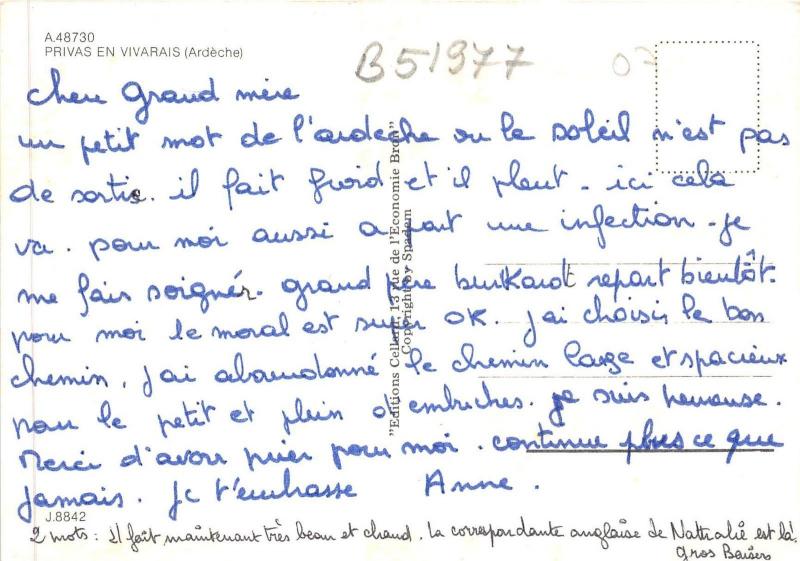 A.48730
PRIVAS EN VIVARAIS (Ardèche)
B51977
07
cheu Grand mère
un petit mot de l'ardèche ou le soleil n'est pas
de sortie. il fait froid et il pleut. ici cela
va. pour moi aussi a part une infection. je
me fais soigner. grand père burkardt repart bientôt.
pour moi le moral est super OK. j'ai choisis le bon
chemin, j'ai abandonné le chemin large et spacieux
pour le petit et plein d'embuches. je suis heureuse.
Merci d'avoir prier pour moi. continue plus ce que
jamais. je t'embrasse Anne.
"Editions Cellard, 13 rue de l'Economie Bron"
Copyright by Spadem
J.8842
2 mots: Il fait maintenant très beau et chaud. La correspondante anglaise de Nathalie est là.
gros Baisers